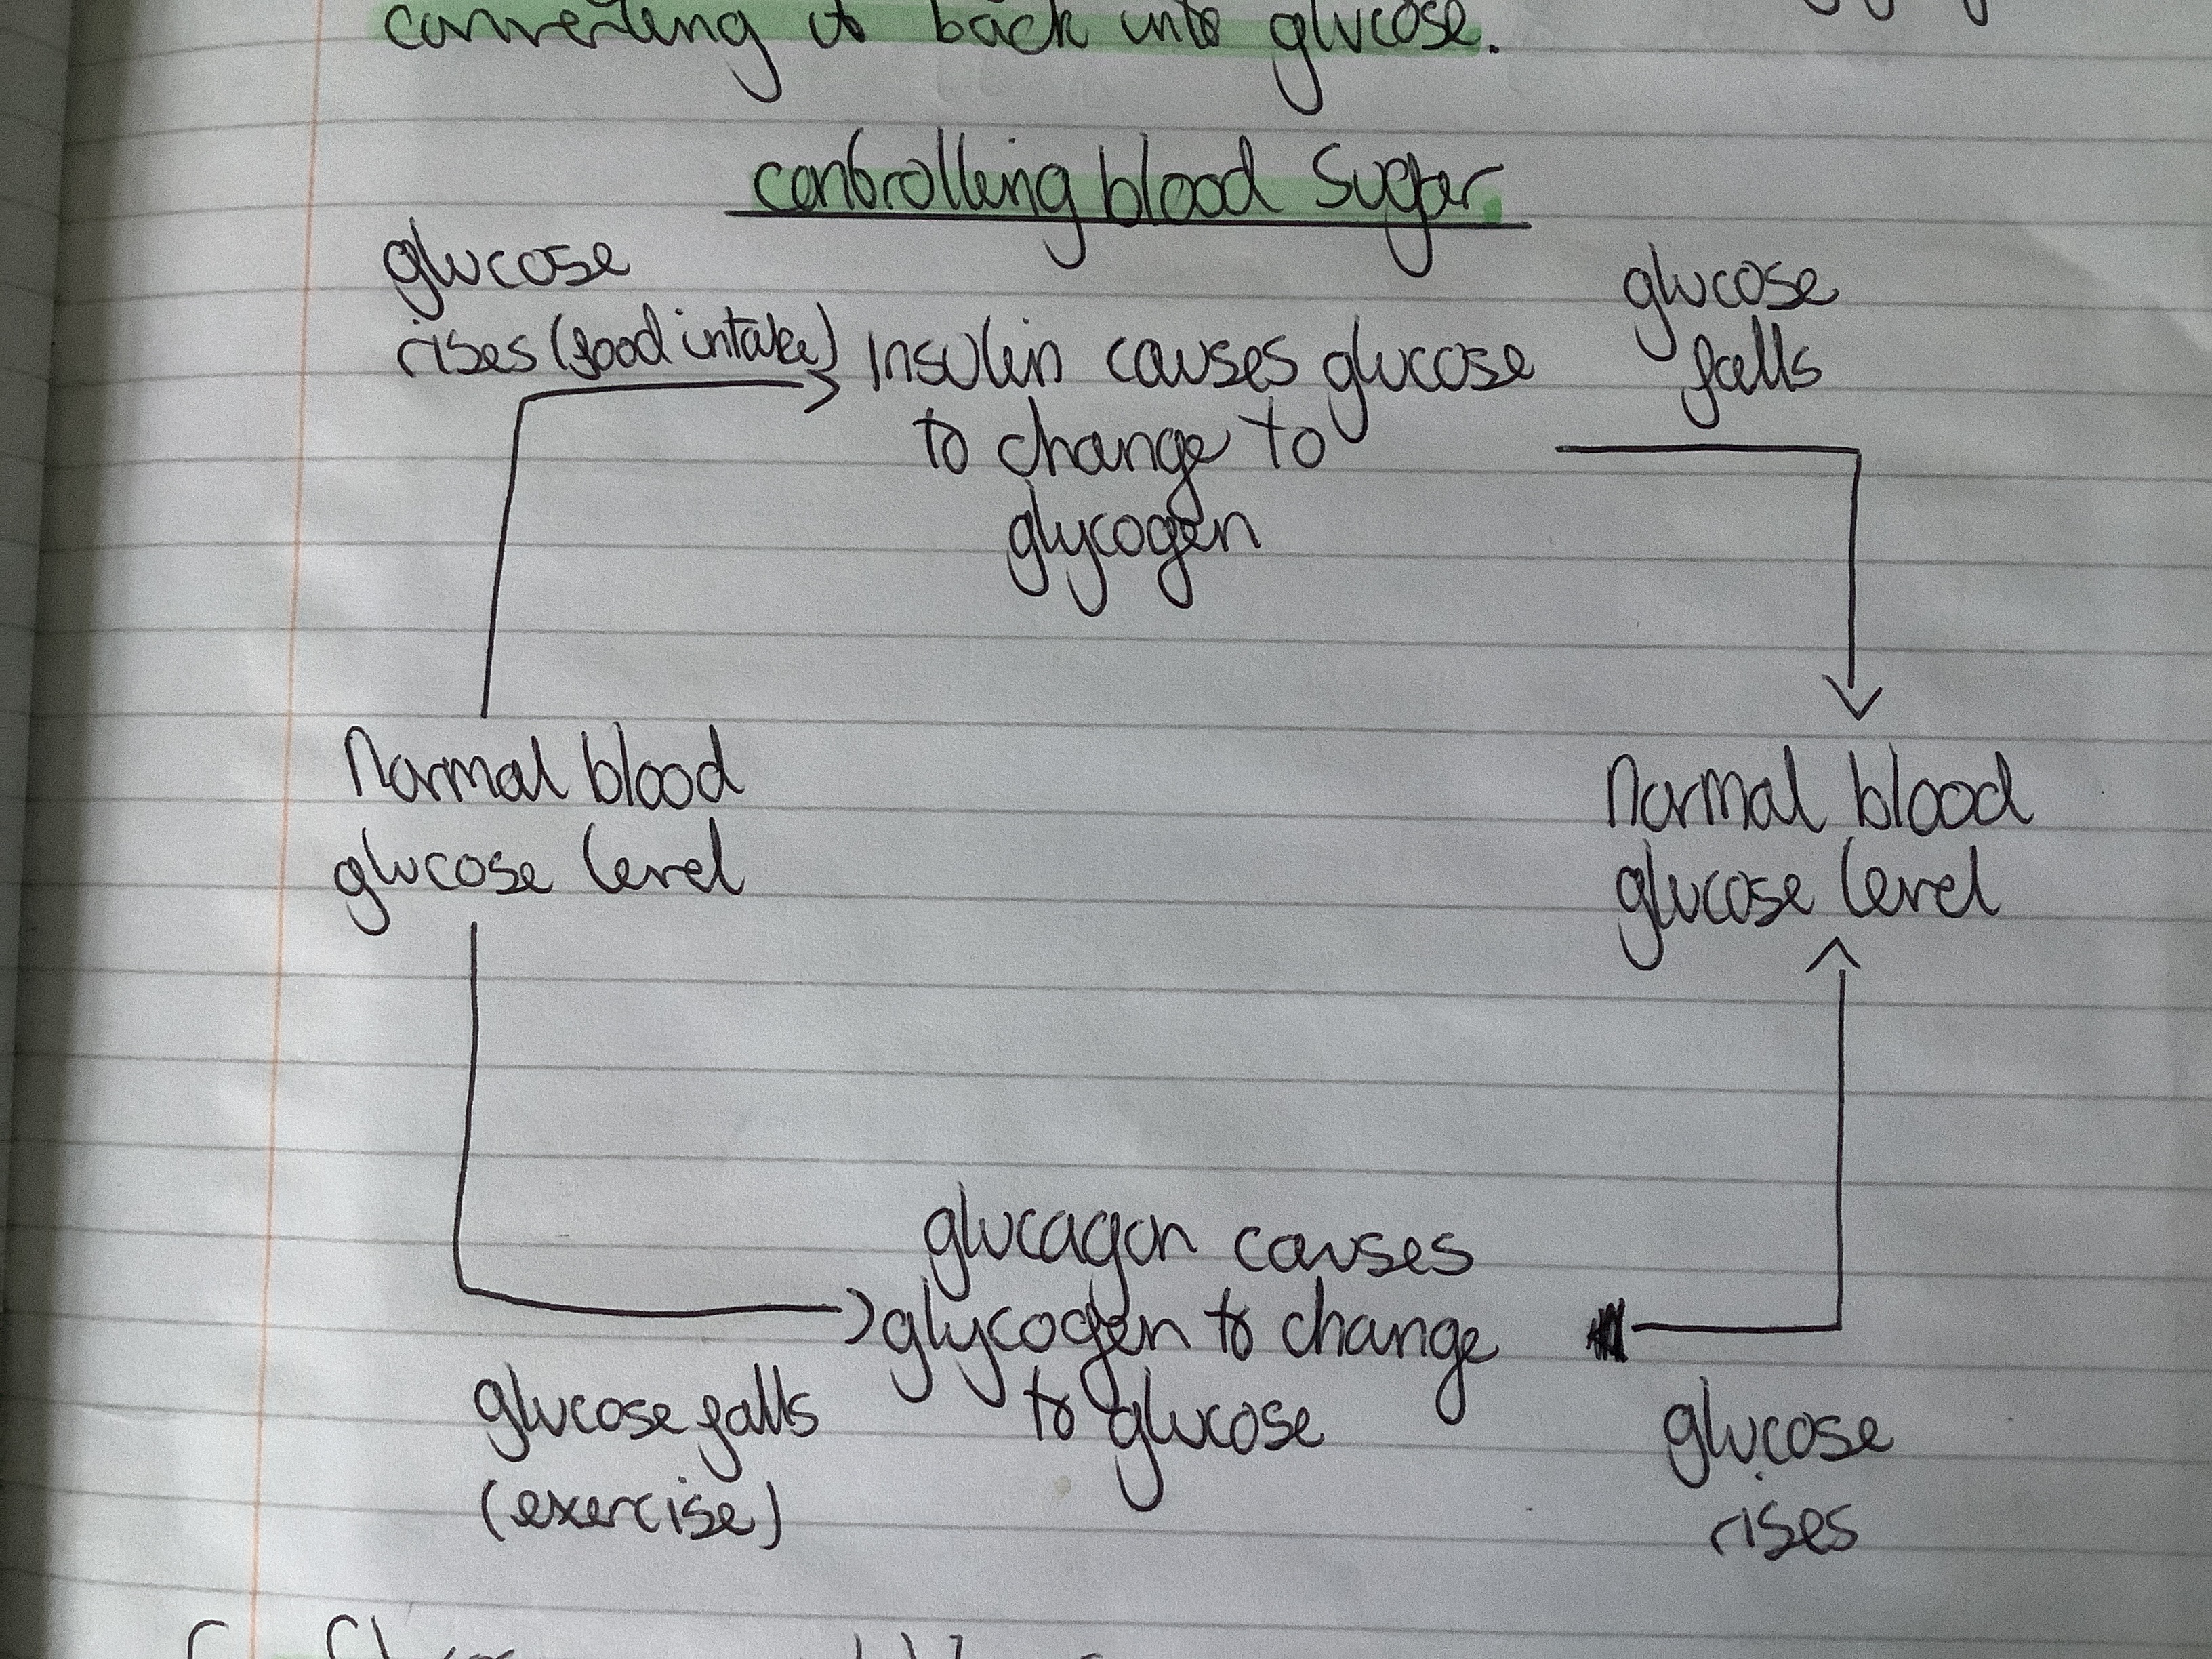 converting it back into glucose.
controlling blood sugar.
glucose
rises (food intake)
Insulin causes glucose
to change to
glycogen
glucose
falls
Normal blood
glucose level
Normal blood
glucose level
glucagon causes
glycogen to change
to glucose
glucose falls
(exercise)
glucose
rises